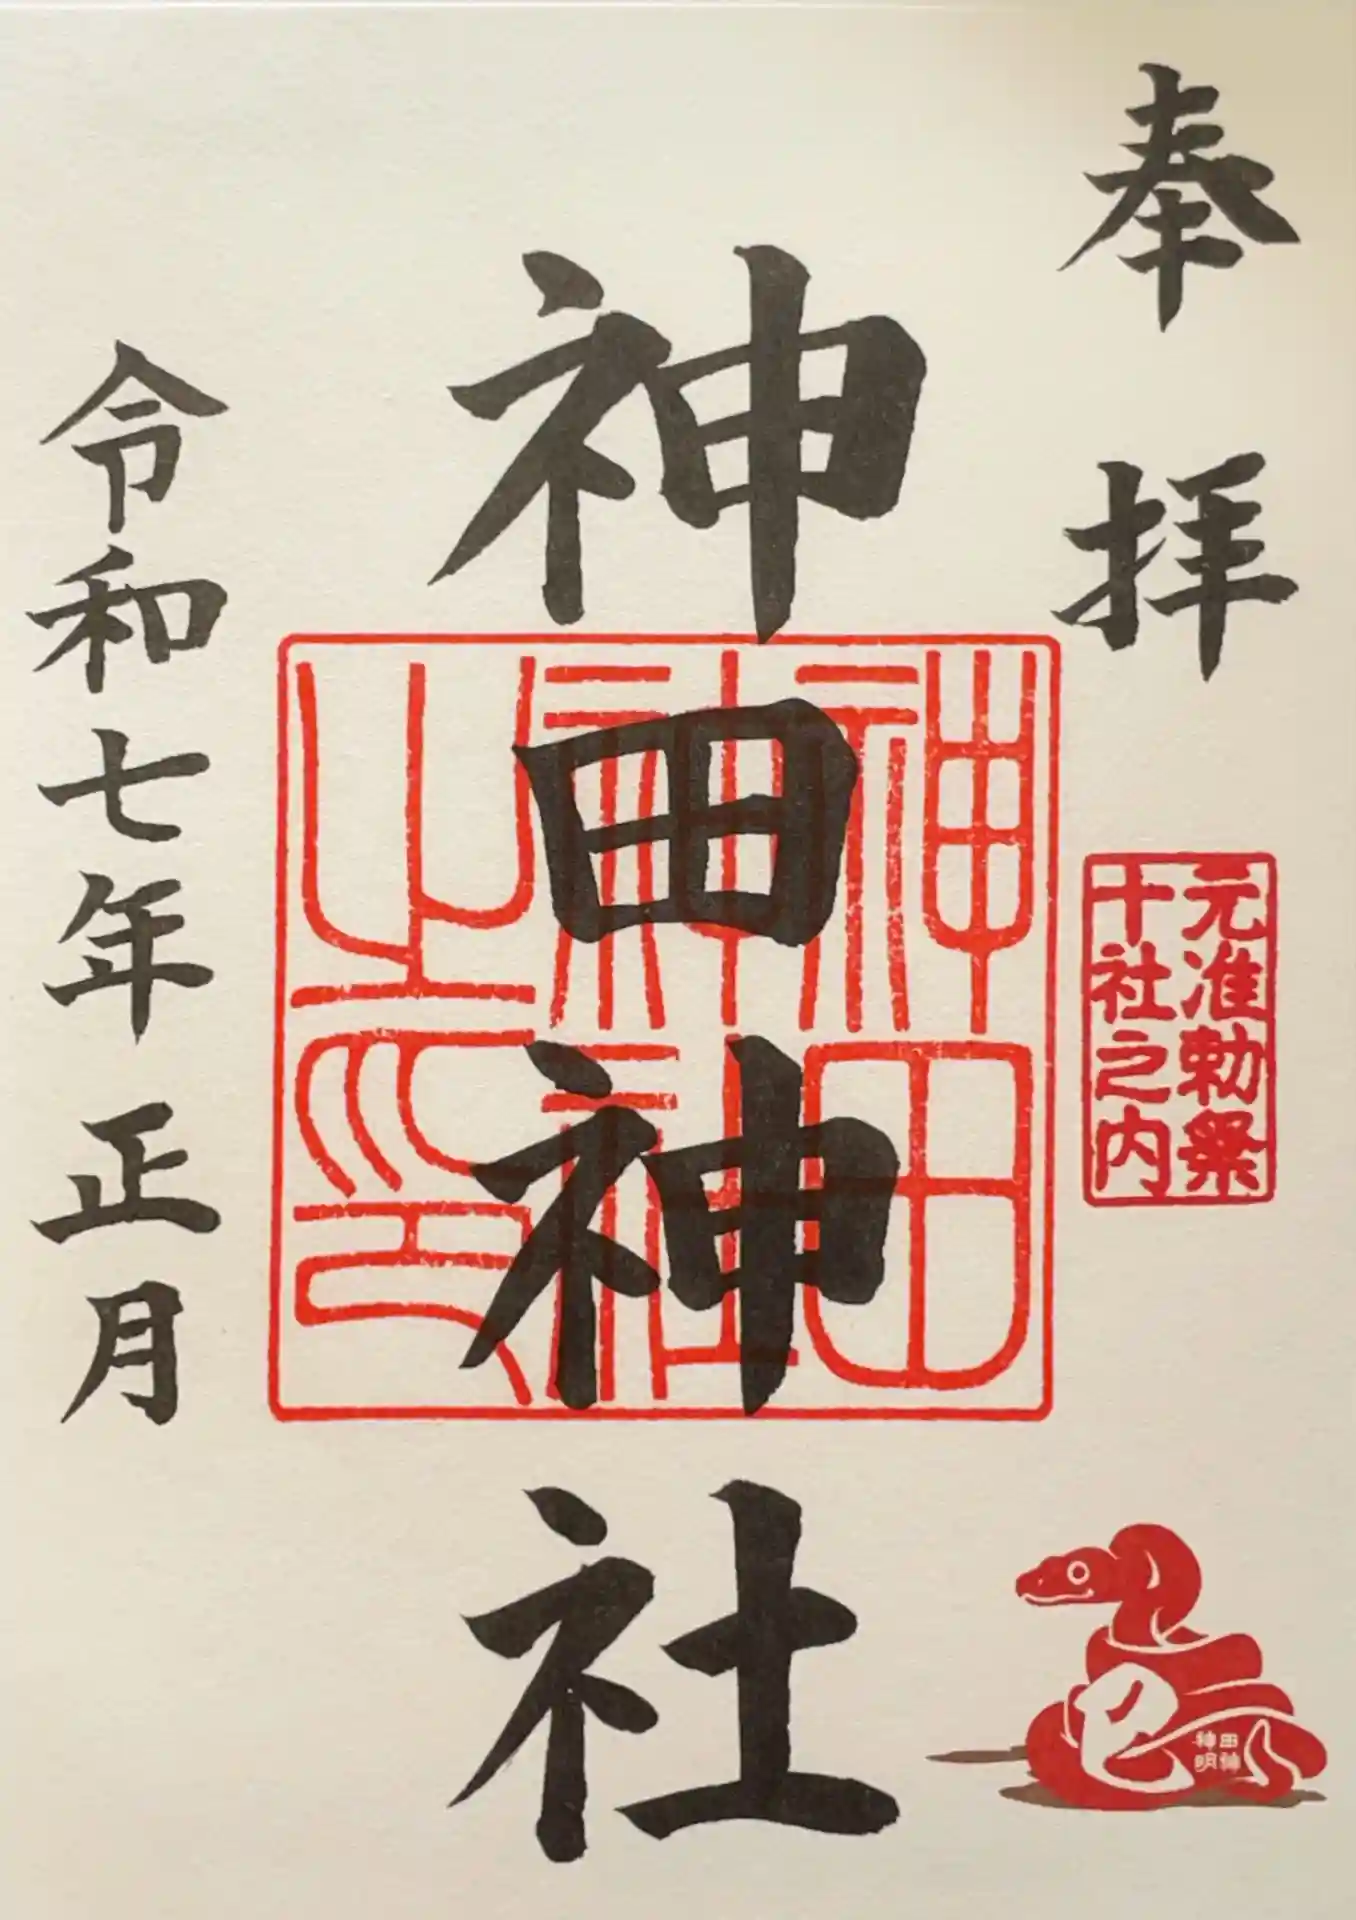 奉拝
元准勅祭
十社之内
神田神社
神田
神社
之印
令和七年正月
巳
田神
神明